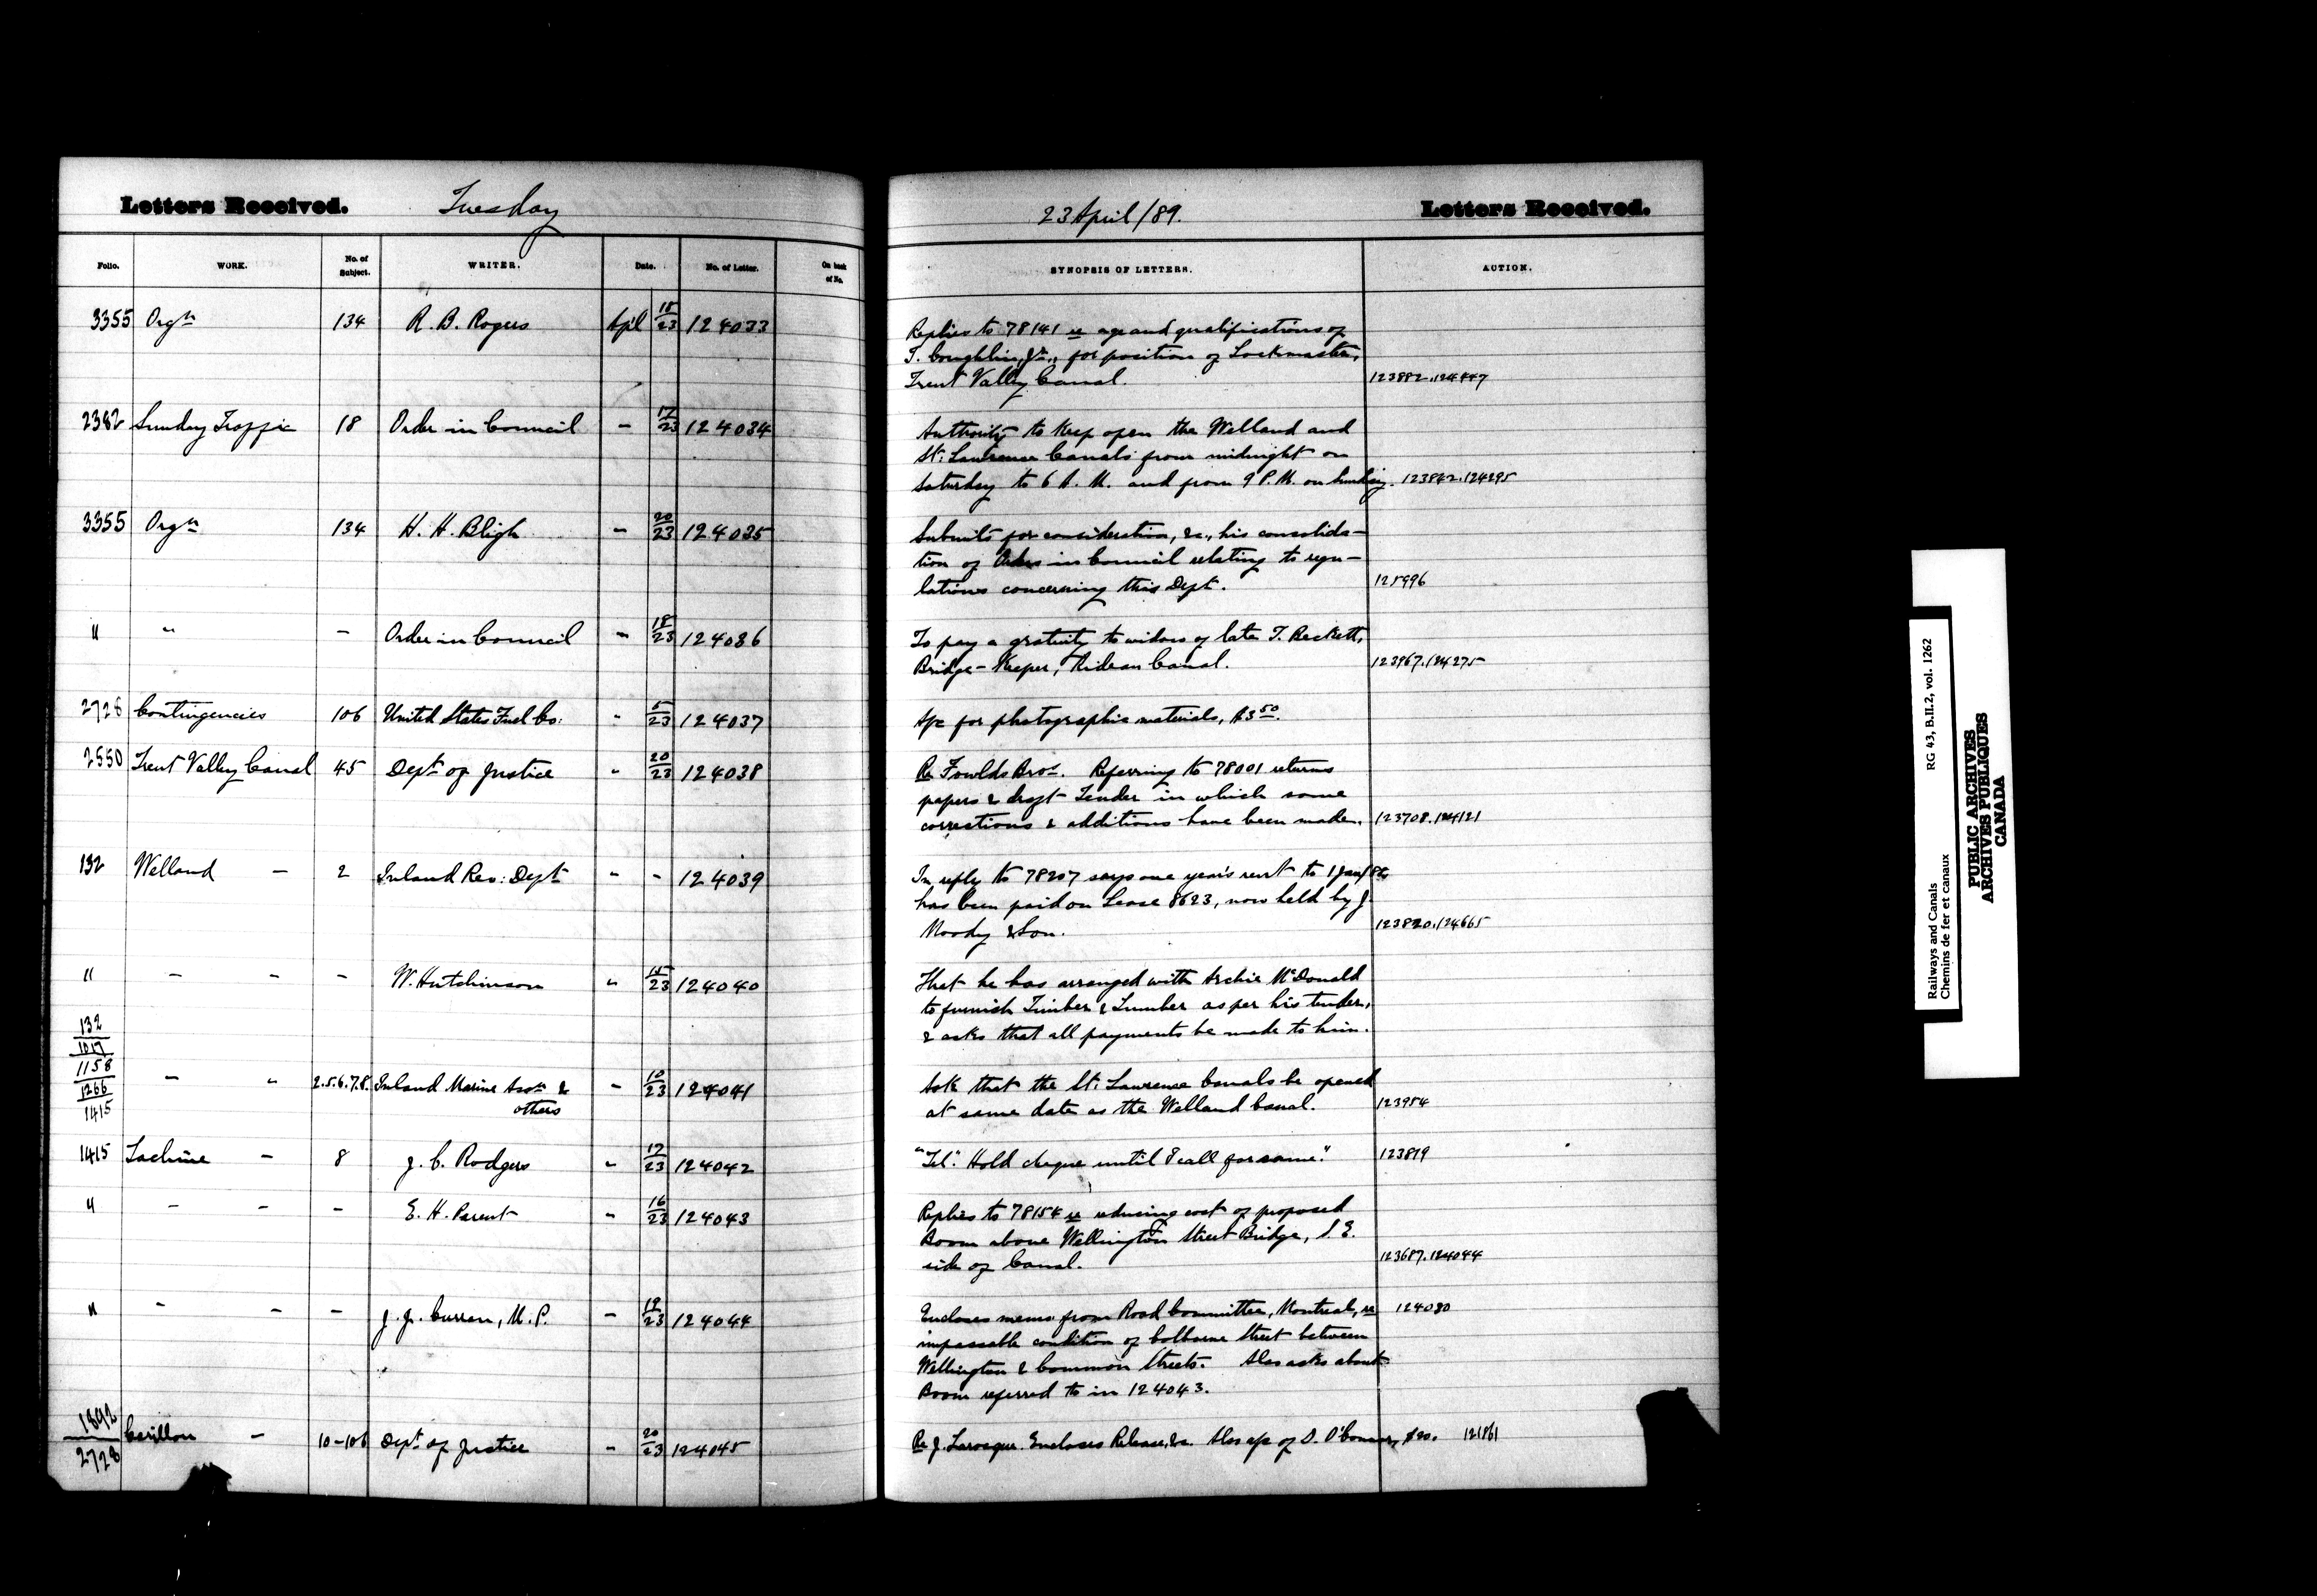 Letters Received. Tuesday
23 April/89. Letters Received.
Folio. WORK. No. of Subject. WRITER. Date. No. of Letter. On back of No.
SYNOPSIS OF LETTERS. ACTION.
3355 Orgn 134 R. B. Rogers Apl 18/23 124033
Replies to 78141 re age and qualifications of
T. Coughlin, Jr., for position of Lockmaster,
Trent Valley Canal. 123882.124447
2382 Sunday Traffic 18 Order in Council - 17/23 124034
Authority to keep open the Welland and
St: Lawrence Canals from midnight on
Saturday to 6 A. M. and from 9 P. M. on Sunday. 123842.124295
3355 Orgn 134 H. H. Bligh - 20/23 124035
Submits for consideration, &c., his consolida-
tion of Orders in Council relating to regu-
lations concerning this Dept. 125996
" " - Order in Council - 18/23 124036
To pay a gratuity to widow of late T. Beckett,
Bridge-Keeper, Rideau Canal. 123967.124275
2728 Contingencies 106 United States Fuel Co: " 5/23 124037
A/c for photographic materials, $3.50.
2550 Trent Valley Canal 45 Dept of Justice " 20/23 124038
Re Fowlds Bros. Referring to 78001 returns
papers & draft Tender in which some
corrections & additions have been made. 123708.124121
132 Welland - 2 Inland Rev: Dept " - 124039
In reply to 78207 says one year's rent to 1 Jan/
has been paid on Lease 8623, now held by J.
Moody & Son. 123820.124665
" - - - W. Hutchinson " 15/23 124040
That he has arranged with Archie McDonald
to furnish Timber & Lumber as per his tender,
& asks that all payments be made to him.
132
1017
1158
1266
1415
- " 2.5.6.7.8. Inland Marine Assn &
others - 10/23 124041
Ask that the St: Lawrence Canals be opened
at same date as the Welland Canal. 123954
1415 Lachine - 8 J. C. Rodgers " 17/23 124042
"Tel". Hold cheque until I call for same." 123819
" - - - E. H. Parent " 16/23 124043
Replies to 78154 re reducing cost of proposed
Boom above Wellington Street Bridge, S. E.
side of Canal. 123687.124044
" - - - J. J. Curran, M. P. - 19/23 124044
Encloses memo from Road Committee, Montreal, re 124080
impassable condition of Colborne Street between
Wellington & Common Streets. Also asks about
Boom referred to in 124043.
1892
2728
Carillon - 10-106 Dept of Justice - 20/23 124045
Re J. Larocque. Encloses Release, &c. Also a/c of D. O'Connor, $20. 121861
Railways and Canals RG 43, B.II.2, vol. 1262
Chemins de fer et canaux
PUBLIC ARCHIVES
ARCHIVES PUBLIQUES
CANADA